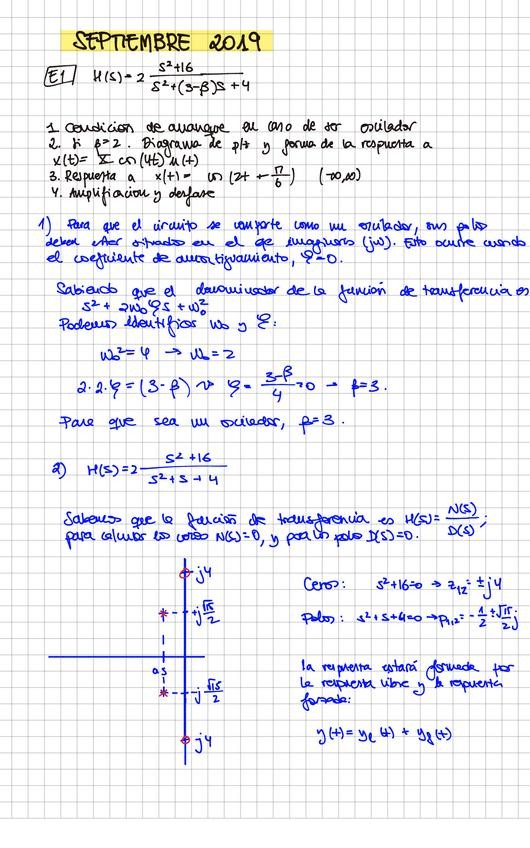 SEPTIEMBRE 2019
E1 H(s) = 2 (s²+16)/(s²+(3-β)s+4)
1. Condicion de arranque en caso de ser oscilador
2. Si β=2. Diagrama de p/z y forma de la respuesta a
x(t)= X cos(4t) u(t)
3. Respuesta a x(t)= cos(2t + π/6) (-∞,∞)
4. Amplificacion y desfase
1) Para que el circuito se comporte como un oscilador, sus polos
deben estar situados en el eje imaginario (jω). Esto ocurre cuando
el coeficiente de amortiguamiento, φ=0.
Sabiendo que el denominador de la función de transferencia es
s² + 2ω₀φs + ω₀²
Podemos identificar ω₀ y φ:
ω₀²=4 → ω₀=2
2·2·φ=(3-β) → φ= (3-β)/4 =0 → β=3.
Para que sea un oscilador, β=3.
2) H(s)=2 (s²+16)/(s²+s+4)
Sabemos que la función de transferencia es H(s)= N(s)/D(s);
para calcular los ceros N(s)=0, y para los polos D(s)=0.
j4
+j√15/2
-j√15/2
j4
Ceros: s²+16=0 → z₁₂= ±j4
Polos: s²+s+4=0 → p₁,₂= -1/2 ± √15/2 j
La respuesta estará formada por
la respuesta libre y la respuesta
forzada:
y(t)= yₗ(t) + y_f(t)